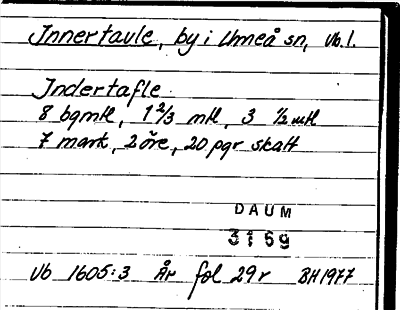 Innertavle, by i Umeå sn, Vb.l.
Indertafle
8 bgmtl, 1 2/3 mtl, 3 1/2 mtl
7 mark, 2 öre, 20 pgr skatt
DAUM
3169
Vb 1605:3 År fol 29r BH1977